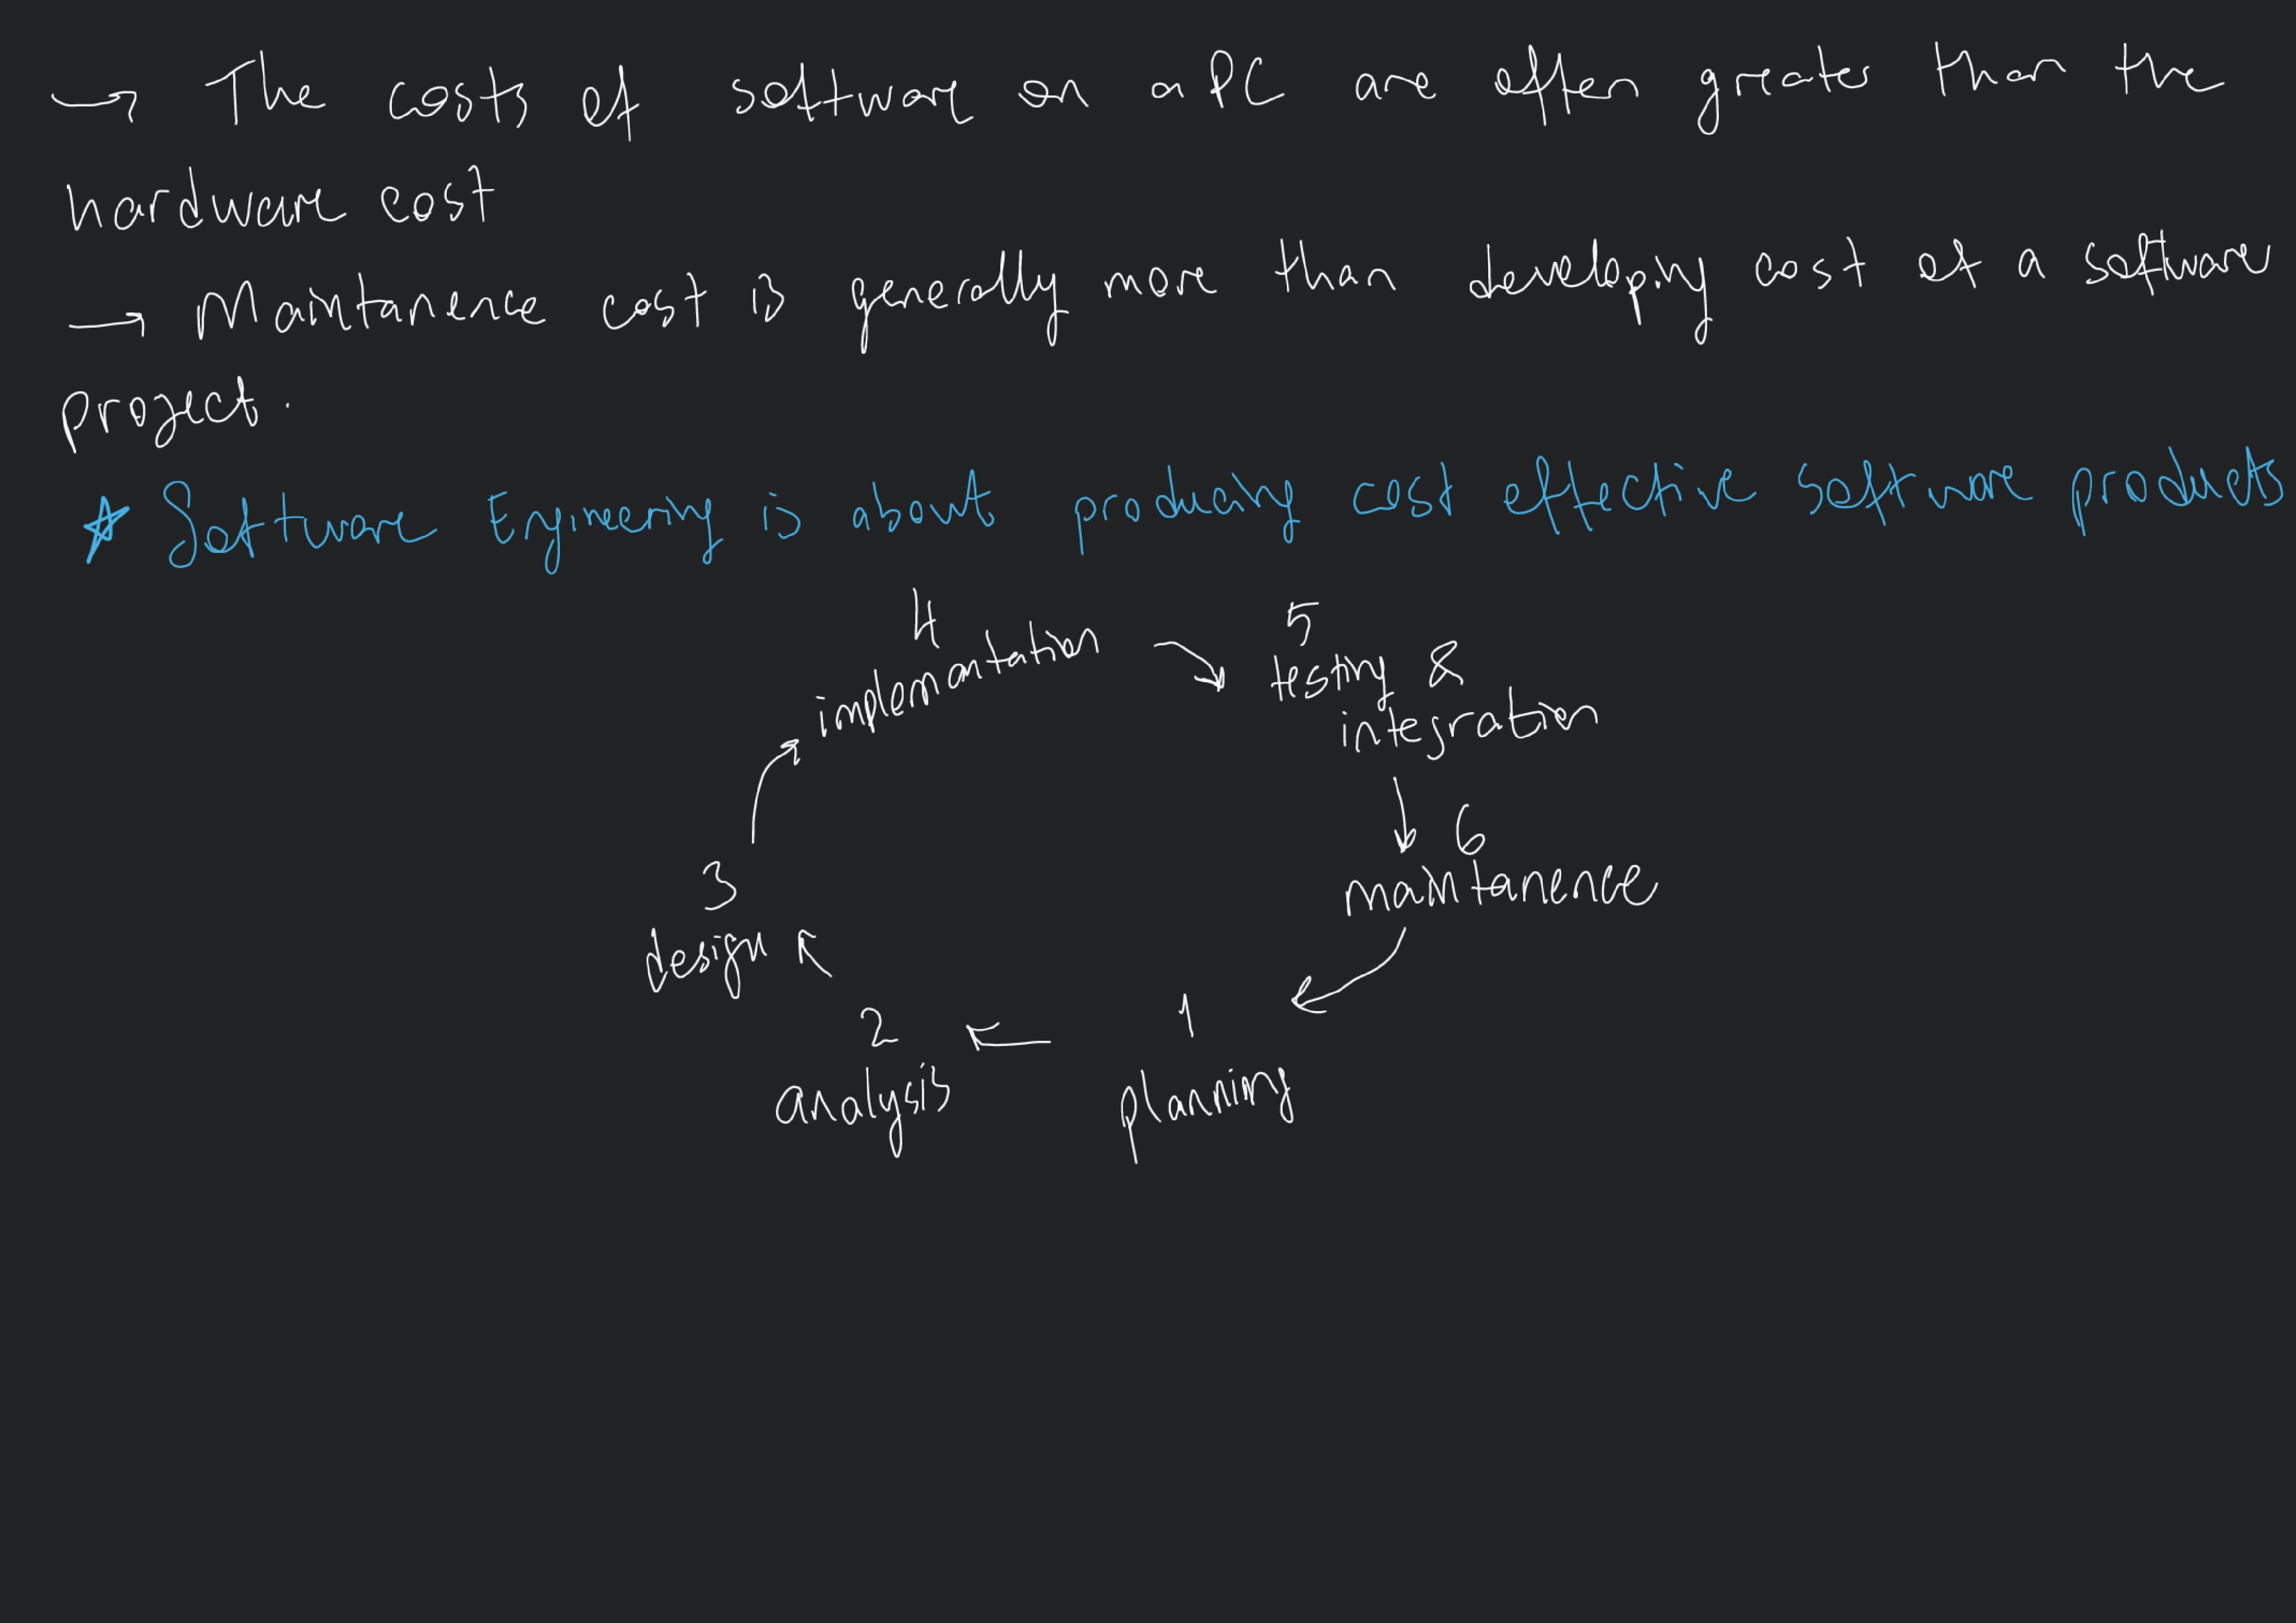 → The costs of software on a PC are often greater than the
hardware cost
→ Maintanence cost is generally more than developing cost of a software
project.
☆ Software Engineering is about producing cost effective software products
4
implemantation →
5
testing &
integration
↓ 6
maintanence
3
design
2
analysis
←
1
planning